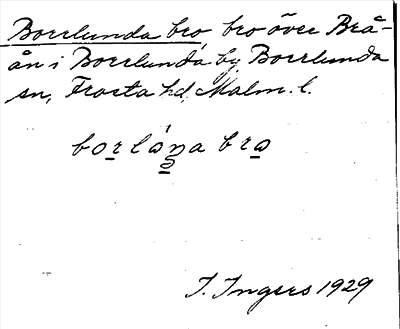 Borrlunda bro, bro över Brå-
ån i Borrlunda by, Borrlunda
sn, Frosta hd, Malm. l.
borlặŋa bro
I. Ingers 1929